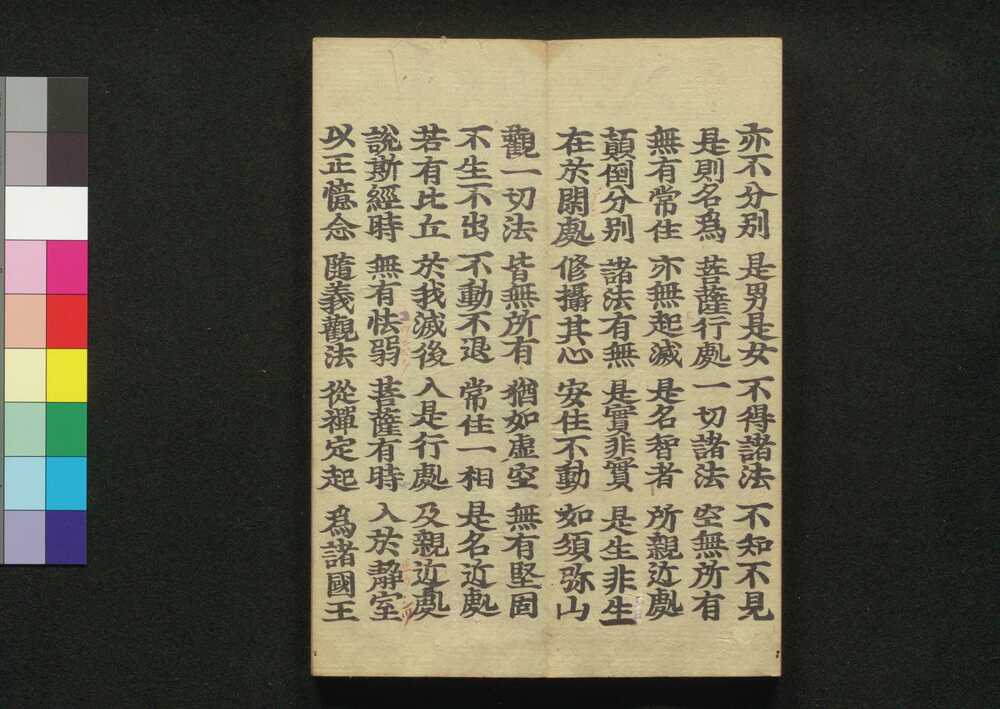 亦不分別 是男是女 不得諸法 不知不見
是則名爲 菩薩行處 一切諸法 空無所有
無有常住 亦無起滅 是名智者 所親近處
顛倒分別 諸法有無 是實非實 是生非生
在於閑處 修攝其心 安住不動 如須弥山
觀一切法 皆無所有 猶如虚空 無有堅固
不生不出 不動不退 常住一相 是名近處
若有比丘 於我滅後 入是行處 及親近處
說斯經時 無有怯弱 菩薩有時 入於靜室
以正憶念 隨義觀法 從禪定起 爲諸國王